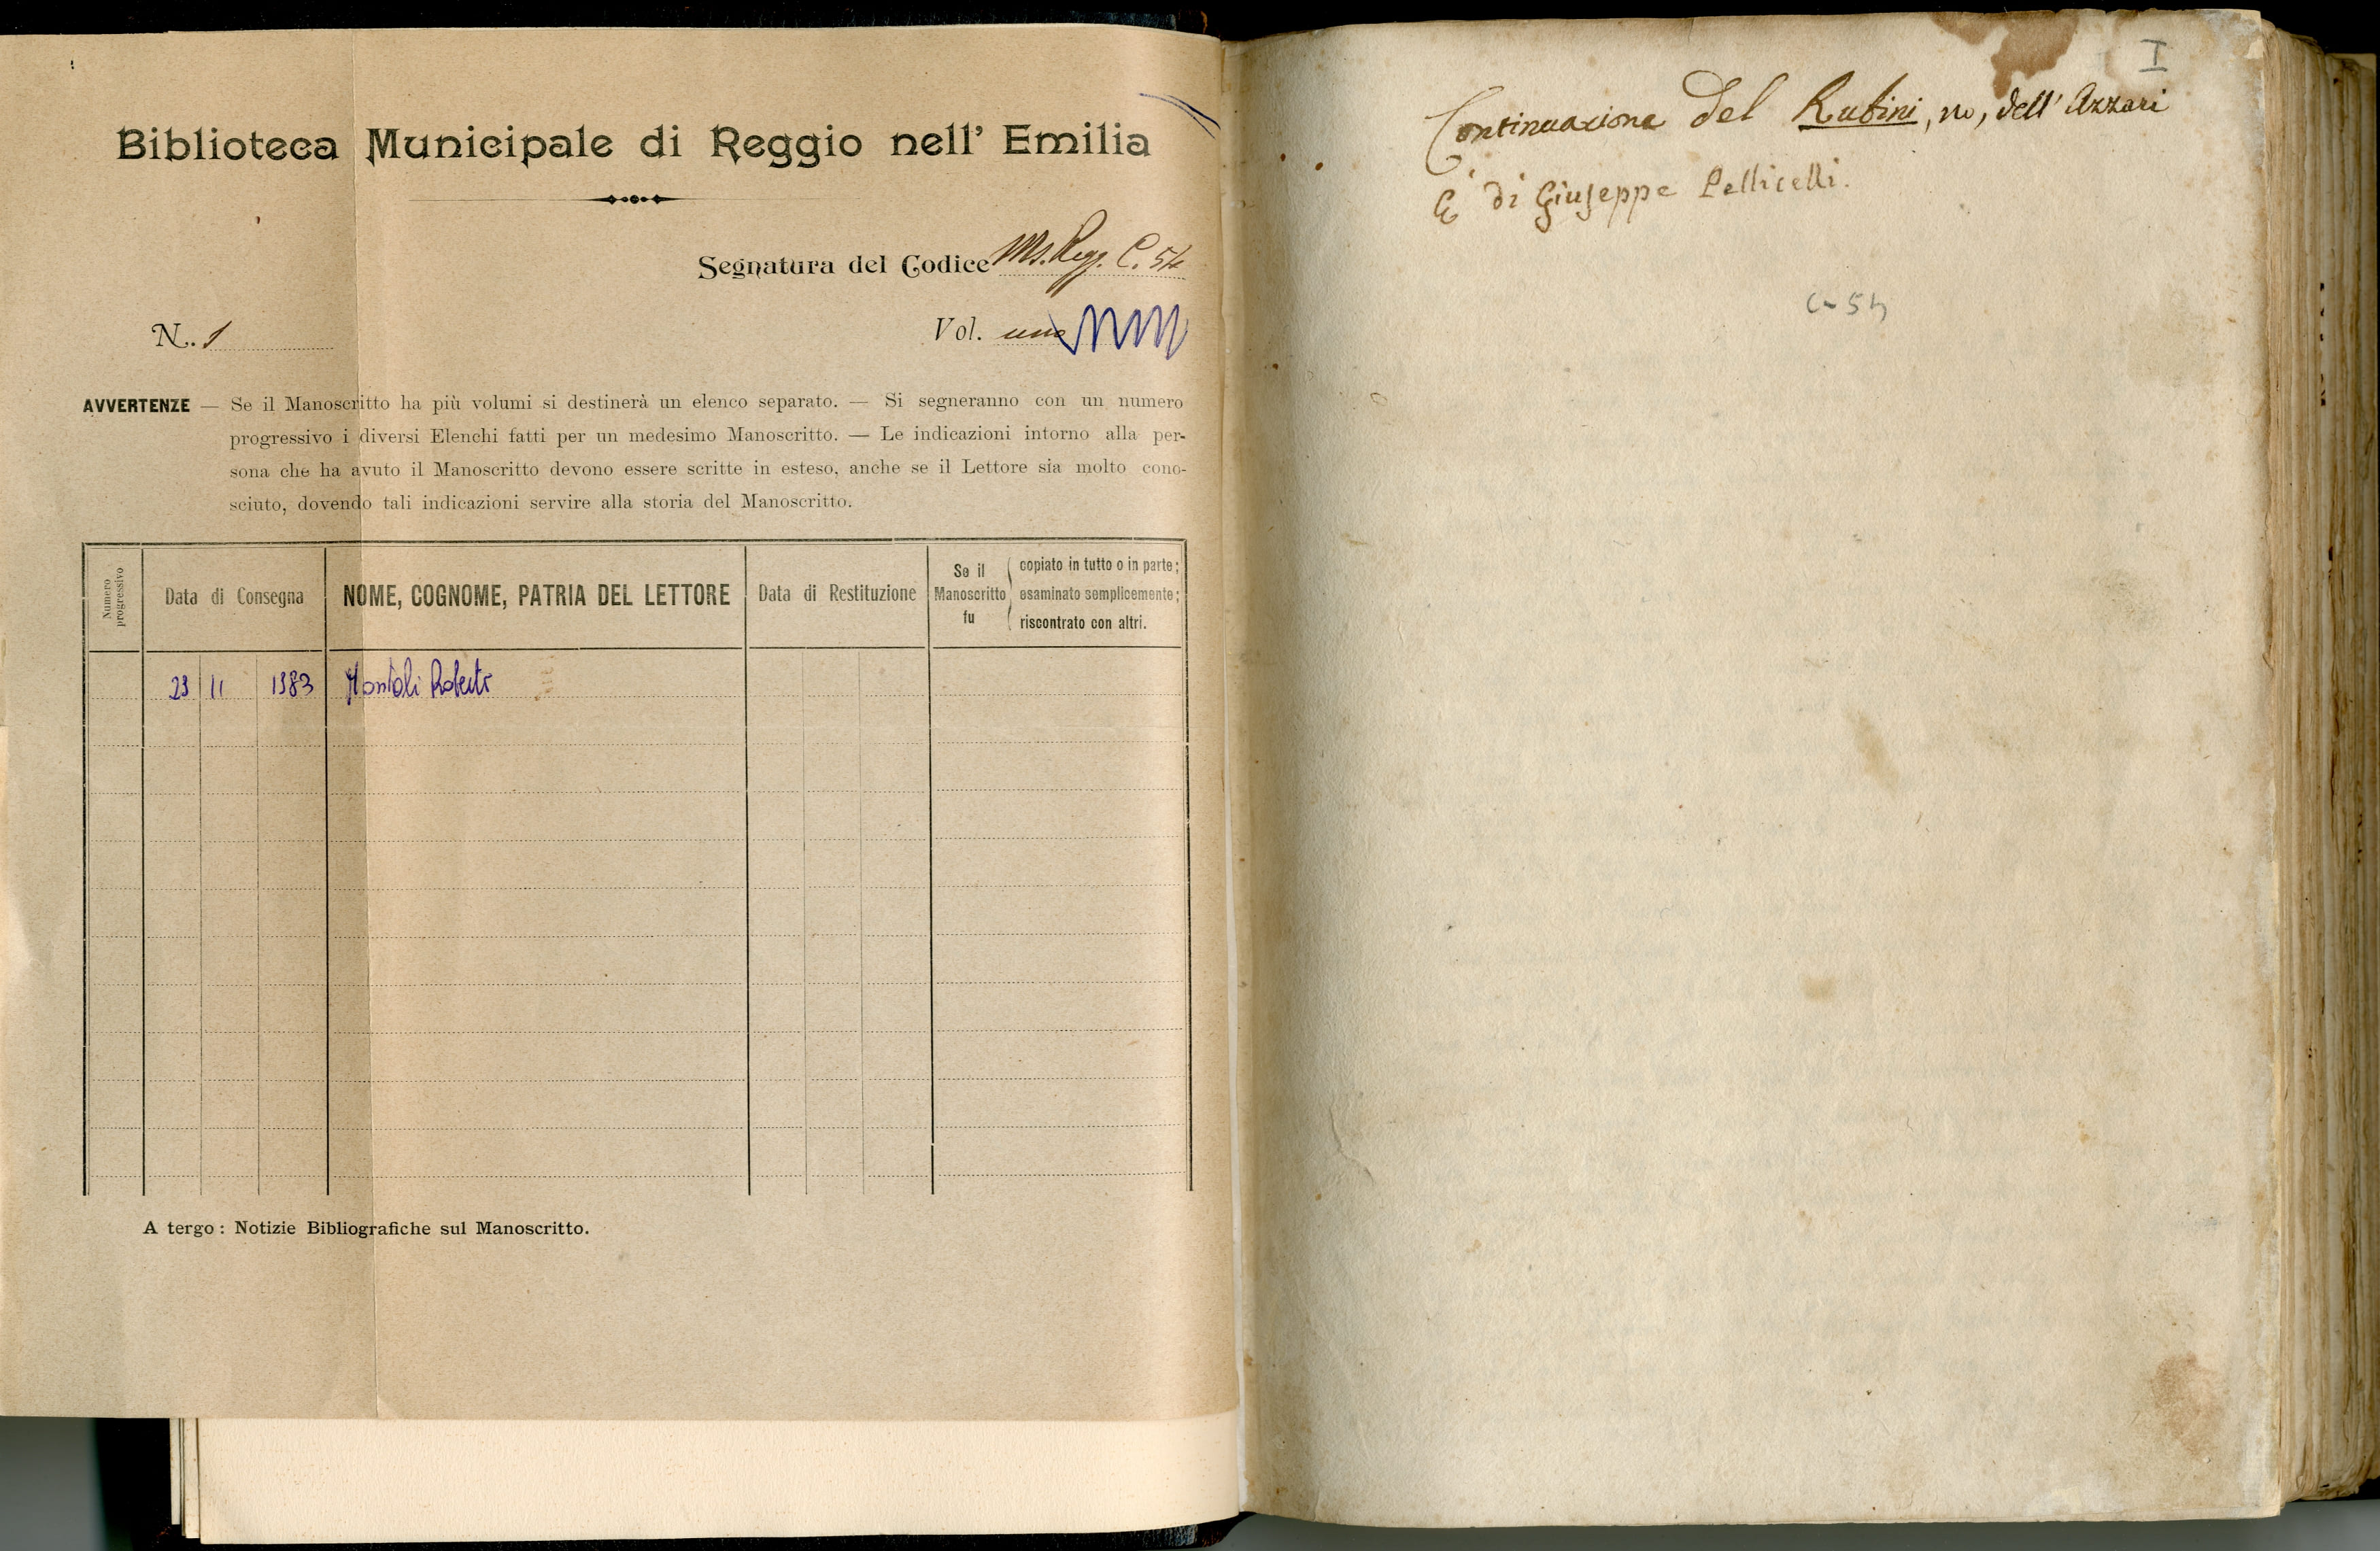 Biblioteca Municipale di Reggio nell' Emilia
Segnatura del Codice Ms. Regg. C. 54
N. 1
Vol. uno
AVVERTENZE — Se il Manoscritto ha più volumi si destinerà un elenco separato. — Si segneranno con un numero
progressivo i diversi Elenchi fatti per un medesimo Manoscritto. — Le indicazioni intorno alla per-
sona che ha avuto il Manoscritto devono essere scritte in esteso, anche se il Lettore sia molto cono-
sciuto, dovendo tali indicazioni servire alla storia del Manoscritto.
Numero
progressivo
Data di Consegna
NOME, COGNOME, PATRIA DEL LETTORE
Data di Restituzione
Se il
Manoscritto
fu
copiato in tutto o in parte;
esaminato semplicemente;
riscontrato con altri.
23 11 1983 Montali Roberto
A tergo: Notizie Bibliografiche sul Manoscritto.
I
Continuazione del Rubini, no, dell' Azzari
E' di Giuseppe Pellicelli.
C-54